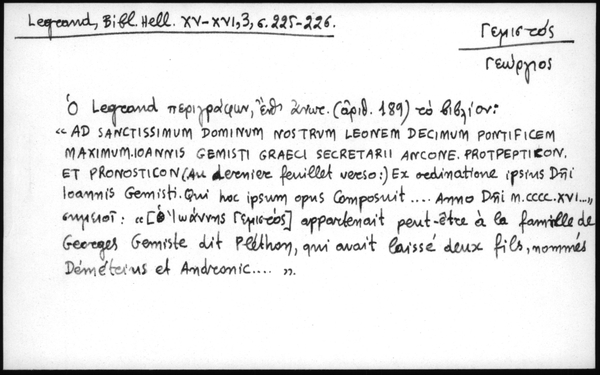 Legrand, Bibl. Hell. XV-XVI, 3, σ. 225-226.
Γεμιστός
Γεώργιος
Ὁ Legrand περιγράφων, ἔνθ' ἀνωτ. (ἀριθ. 189) τὸ βιβλίον:
« AD SANCTISSIMUM DOMINUM NOSTRUM LEONEM DECIMUM PONTIFICEM
MAXIMUM. IOANNIS GEMISTI GRAECI SECRETARII ANCONE. PROTPEPTICON.
ET PRONOSTICON (Au dernier feuillet verso:) Ex ordinatione ipsius Dñi
Ioannis Gemisti. Qui hoc ipsum opus Composuit .... Anno Dñi M.CCCC.XVI...»
σημειοῖ: «[ὁ Ἰωάννης Γεμιστός] appartenait peut-être à la famille de
Georges Gemiste dit Pléthon, qui avait laissé deux fils, nommés
Démétrius et Andronic.... ».